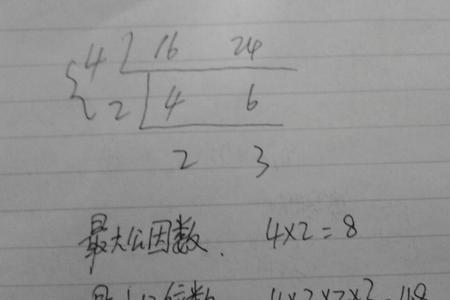 4 16 24
2 4 6
2 3
最大公因数. 4×2=8
4×2×2×3=48